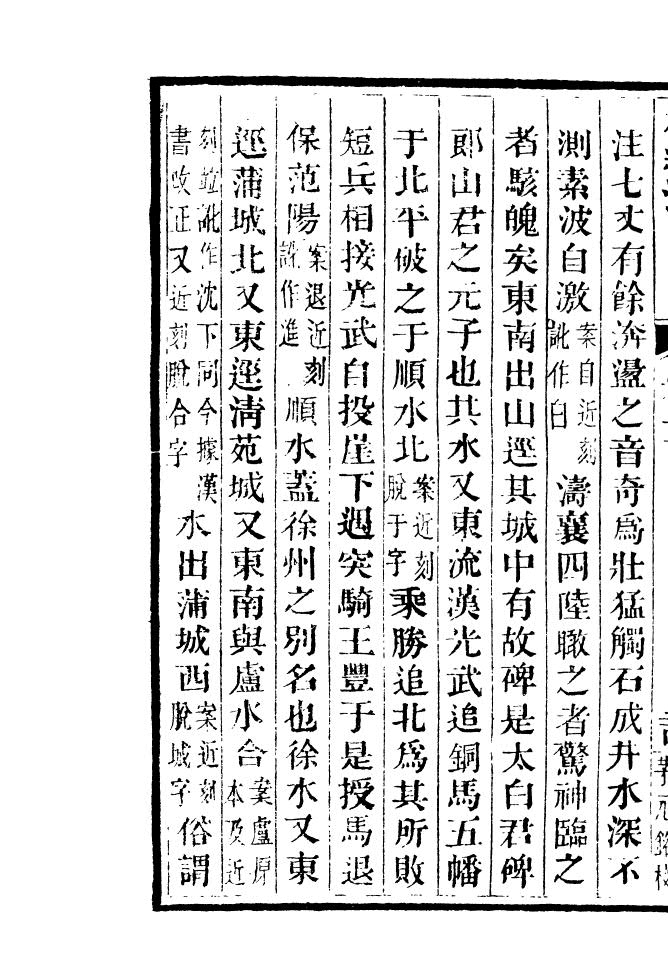 注七丈有餘渀盪之音奇爲壯猛觸石成井水深不
測素波自激案自近刻訛作白濤襄四陸瞰之者驚神臨之
者駭魄矣東南出山逕其城中有故碑是太白君碑
郎山君之元子也其水又東流漢光武追銅馬五幡
于北平破之于順水北案近刻脫于字乘勝追北爲其所敗
短兵相接光武自投崖下遇突騎王豐于是授馬退
保范陽案退近刻訛作進順水蓋徐州之別名也徐水又東
逕蒲城北又東逕清苑城又東南與盧水合案盧原本及近
刻並訛作沈下同今據漢書改正又近刻脫合字水出蒲城西案近刻脫城字俗謂